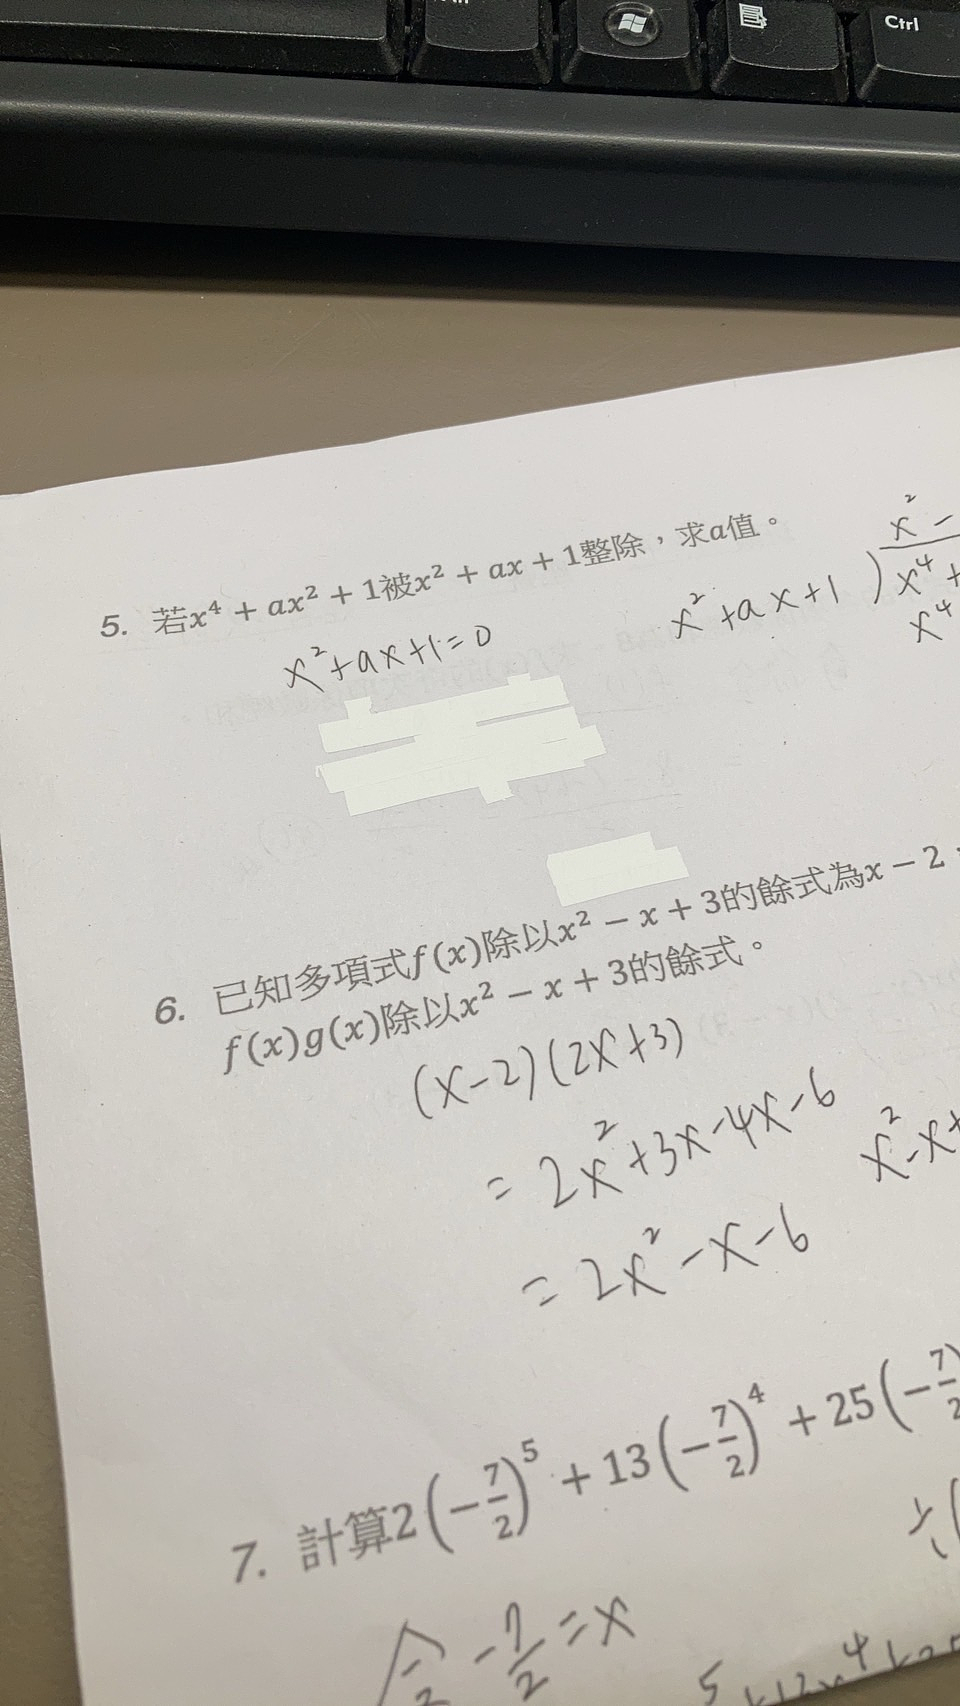 Ctrl
5. 若x⁴ + ax² + 1被x² + ax + 1整除，求a值。
x²+ax+1=0
x² −
x²+ax+1 ) x⁴ +
x⁴
6. 已知多項式f(x)除以x² − x + 3的餘式為x − 2
f(x)g(x)除以x² − x + 3的餘式。
(x−2)(2x+3)
= 2x²+3x−4x−6
x²−x+
= 2x²−x−6
7. 計算2(−7/2)⁵ + 13(−7/2)⁴ + 25(−7/2
−7/2 = x